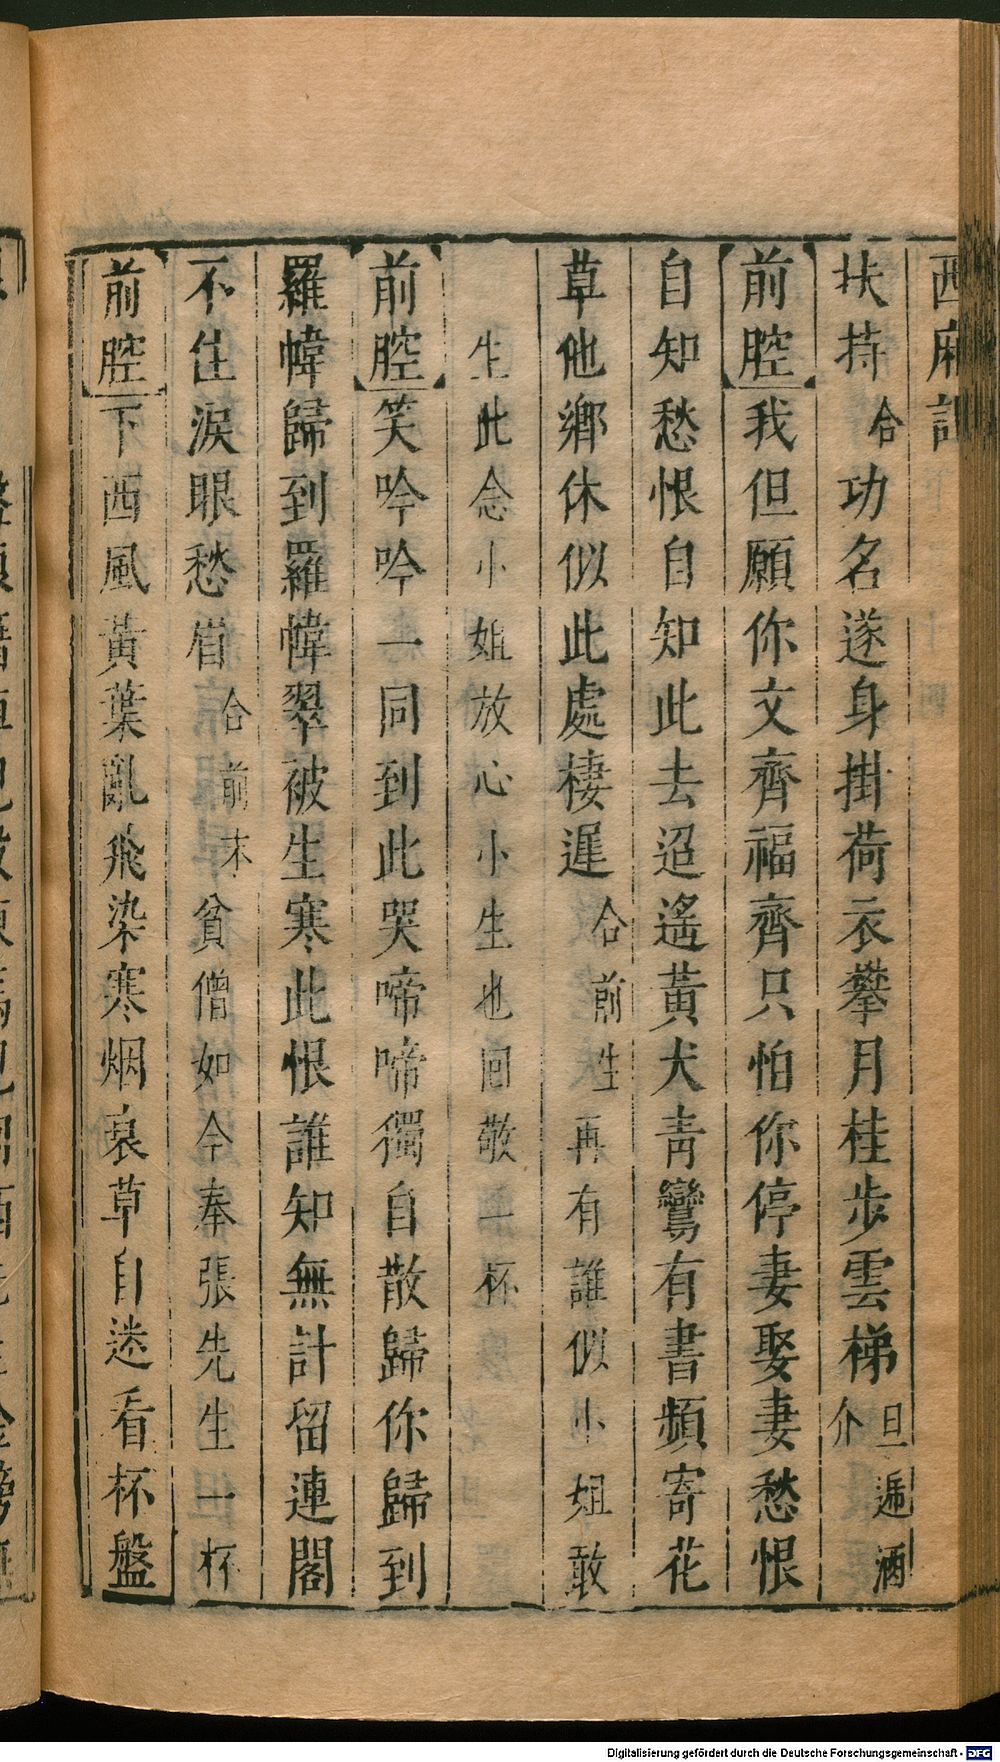 西廂記
扶持 合 功名遂身掛荷衣攀月桂步雲梯 旦遞酒介
【前腔】我但願你文齊福齊只怕你停妻娶妻愁恨
自知愁恨自知此去迢遙黃犬青鸞有書頻寄花
草他鄉休似此處棲遲 合前 生 再有誰似小姐敢
生此念小姐放心小生也回敬一杯
【前腔】笑吟吟一同到此哭啼啼獨自散歸你歸到
羅幃歸到羅幃翠被生寒此恨誰知無計留連閣
不住淚眼愁眉 合前 末 貧僧如今奉張先生一杯
【前腔】下西風黃葉亂飛染寒烟衰草自迷看杯盤
Digitalisierung gefördert durch die Deutsche Forschungsgemeinschaft - DFG